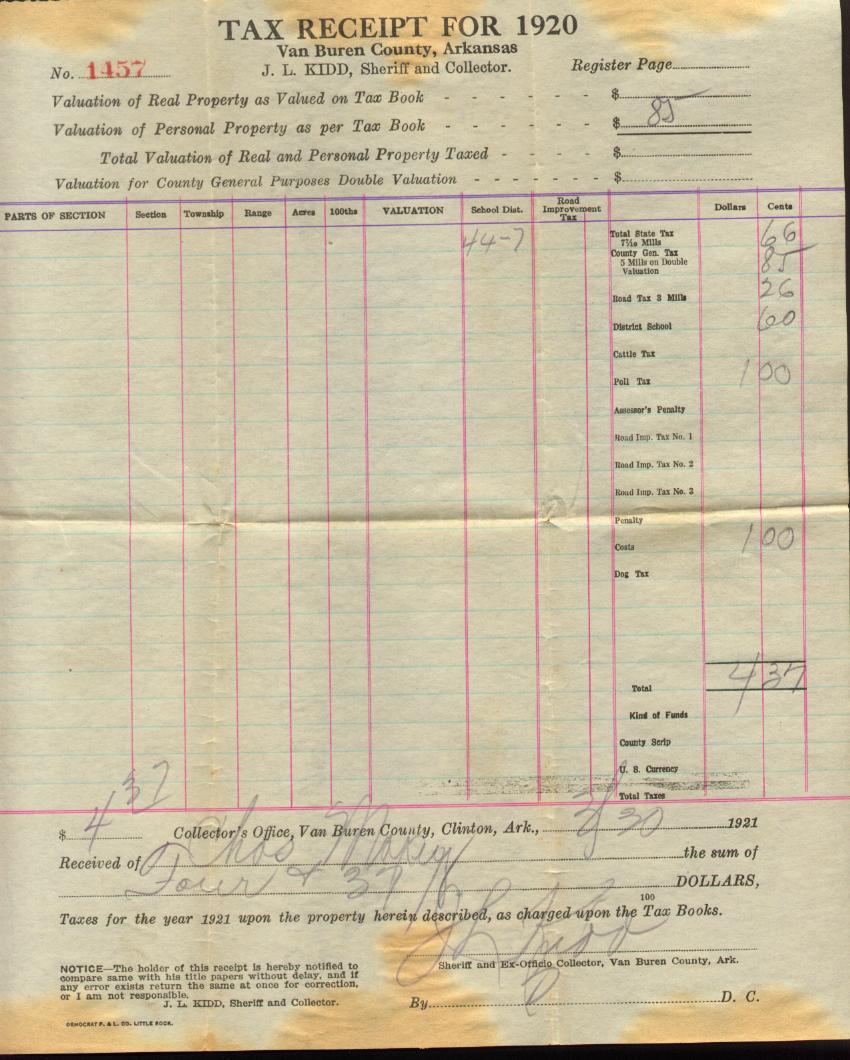 TAX RECEIPT FOR 1920
Van Buren County, Arkansas
No. 1457 J. L. KIDD, Sheriff and Collector. Register Page
Valuation of Real Property as Valued on Tax Book - - - - - - $
Valuation of Personal Property as per Tax Book - - - - - - $ 85
Total Valuation of Real and Personal Property Taxed - - - - $
Valuation for County General Purposes Double Valuation - - - - - - - $
PARTS OF SECTION Section Township Range Acres 100ths VALUATION School Dist. Road Improvement Tax Dollars Cents
44-7
Total State Tax 66
7 7/10 Mills
County Gen. Tax 85
5 Mills on Double
Valuation
Road Tax 3 Mills 26
District School 60
Cattle Tax
Poll Tax 1 00
Assessor's Penalty
Road Imp. Tax No. 1
Road Imp. Tax No. 2
Road Imp. Tax No. 3
Penalty
Costs 1 00
Dog Tax
Total 4 37
Kind of Funds
County Scrip
U. S. Currency
Total Taxes
$ 4 37 Collector's Office, Van Buren County, Clinton, Ark., 3/30 1921
Received of Chas the sum of
Four & 37/ DOLLARS,
100
Taxes for the year 1921 upon the property herein described, as charged upon the Tax Books.
J L Kidd
Sheriff and Ex-Officio Collector, Van Buren County, Ark.
By D. C.
NOTICE—The holder of this receipt is hereby notified to
compare same with his title papers without delay, and if
any error exists return the same at once for correction,
or I am not responsible.
J. L. KIDD, Sheriff and Collector.
DEMOCRAT P. & L. CO. LITTLE ROCK.